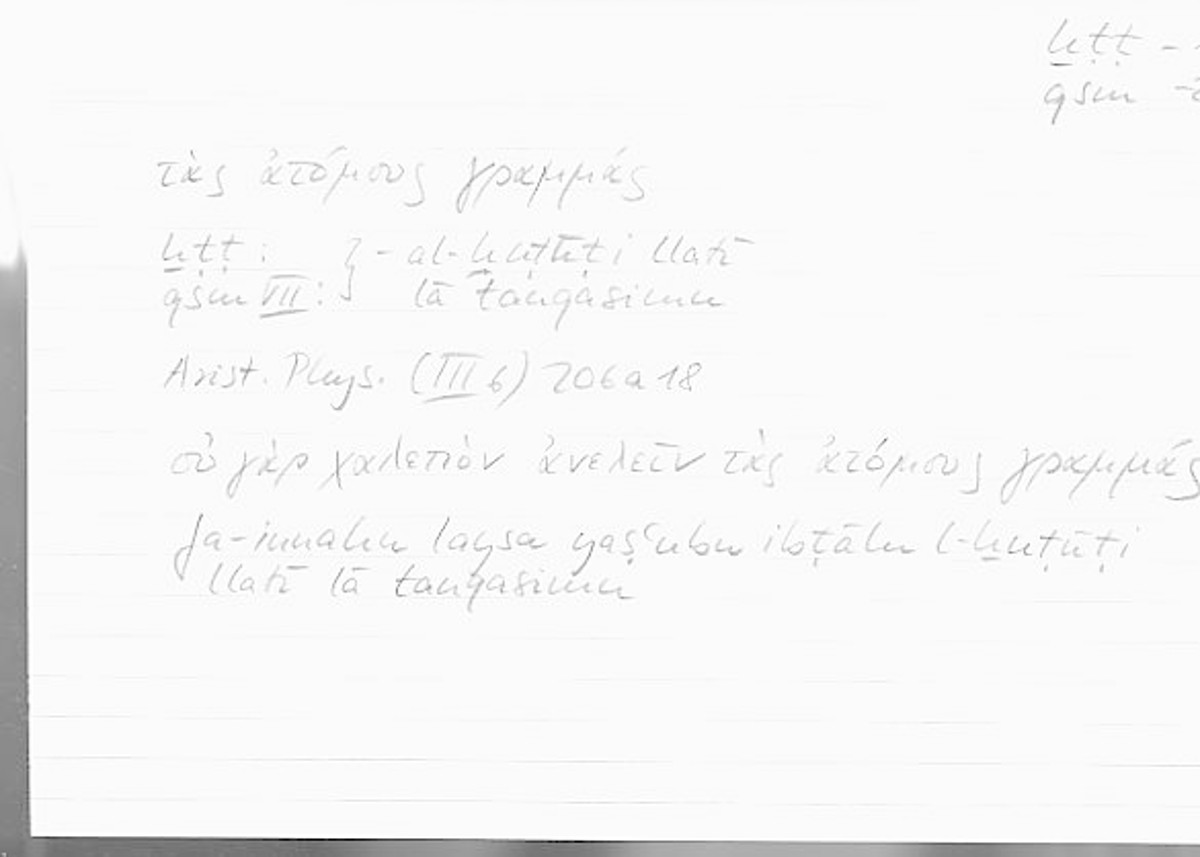 ḫṭṭ -
qsm -
τὰς ἀτόμους γραμμάς
ḫṭṭ : } - al-ḫuṭūṭi llatī
qsm VII : lā tanqasimu
Arist. Phys. (III 6) 206 a 18
οὐ γὰρ χαλεπὸν ἀνελεῖν τὰς ἀτόμους γραμμάς
fa-innahu laysa yaṣʿubu ibṭālu l-ḫuṭūṭi
llatī lā tanqasimu